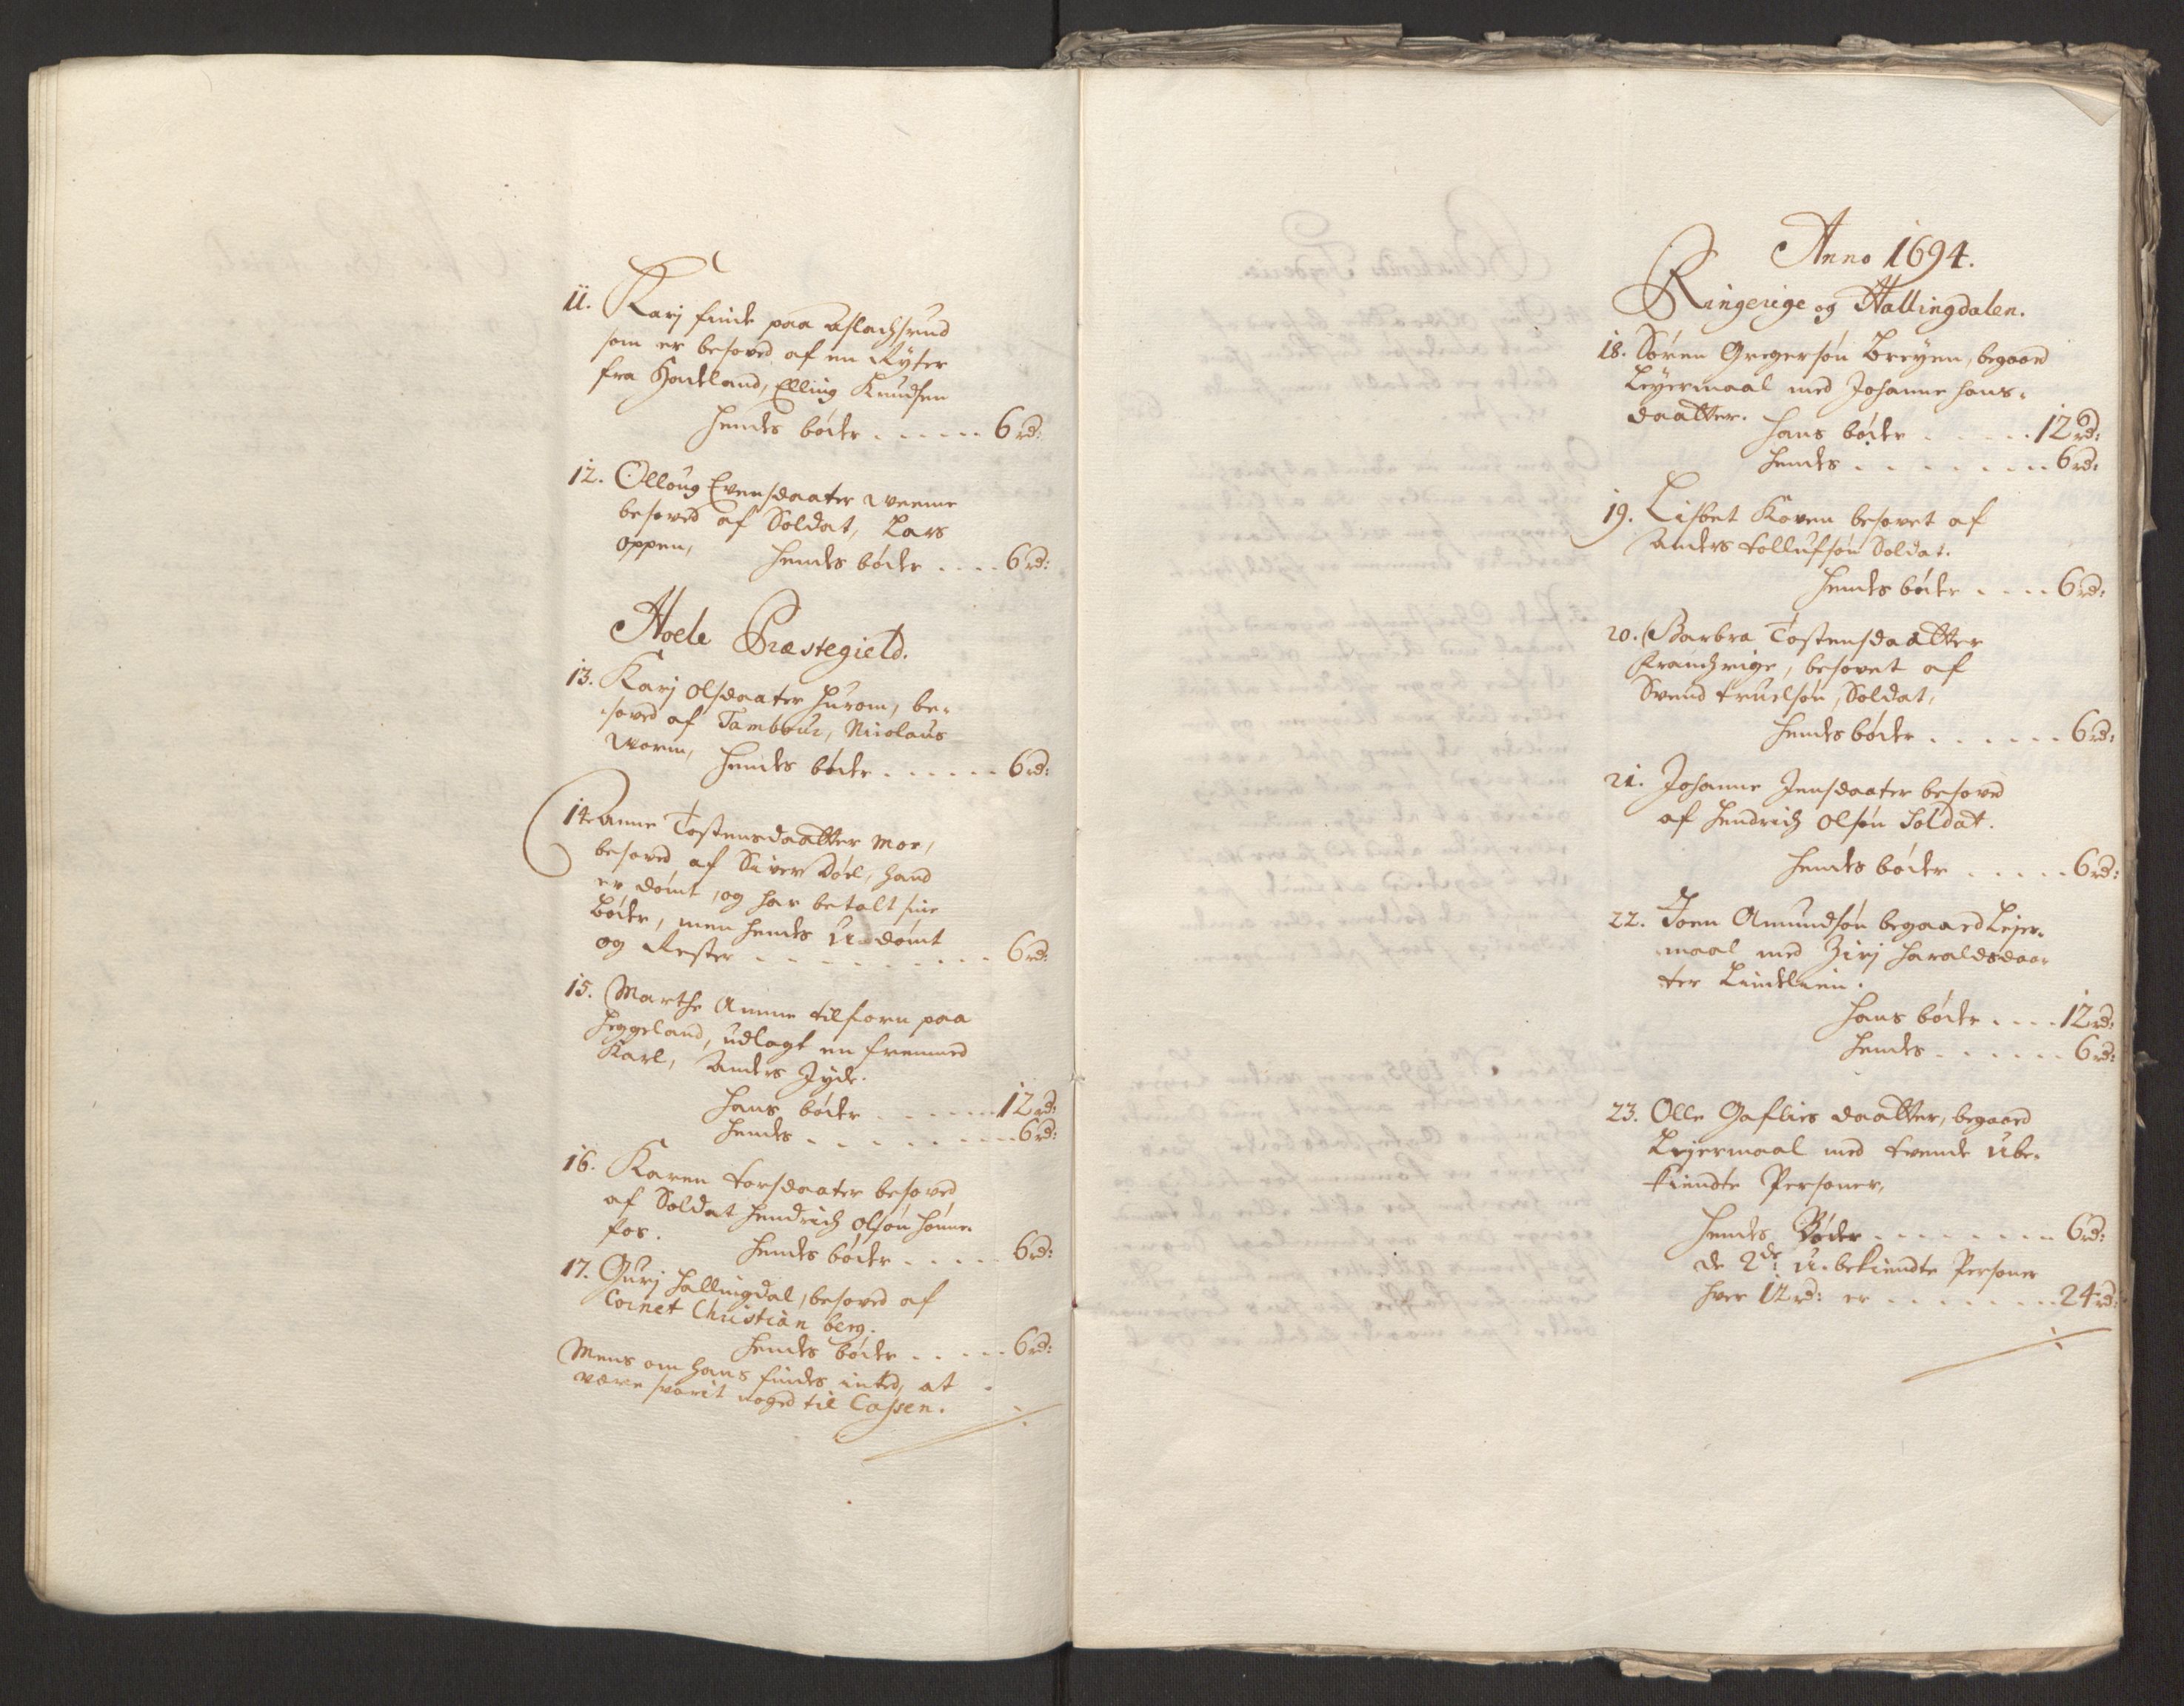 11. Karj finde paa Aslachsrud
som er besoved af en Rÿter
fra Hadeland, Elling Knudsen
hendes bøder ..... 6 rd:
12. Olloug Evensdaater Weeme
besoved af Soldat, Lars
Oppen,
hendes bøder .... 6 rd:
Hoele Præstegield.
13. Karj Olsdaater Hurom, be-
soved af Tambour, Nicolaus
Worm, hendes bøder ...... 6 rd:
14. Anne Tostensdaatter Moe,
besoved af Siver Döel, hand
er dömt, og har betalt sine
Böder, men hendes U-dömt
og Rester ......... 6 rd:
15. Marthe Amme tilforn paa
Heggeland, udlagt en fremmed
Karl, Anders Jÿde.
hans böder ...... 12 rd:
hendes ........ 6 rd:
16. Karen Torsdaater besoved
af Soldat Hendrich Olsön Hönne-
fos.
hendes böder ..... 6 rd:
17. Gurj Hallingdal, besoved af
Cornet Christian berg.
hendes böder ..... 6 rd:
Mens om hans findes inted, at
være svarit noged til Cassen.
Anno 1694.
Ringerige og Hallingdalen.
18. Sören Gregersön Breÿen, begaaed
Leÿermaal med Johanne Hans-
daatter.
hans böder ..... 12 rd:
hendes ....... 6 rd:
19. Lisbet Koven besovet af
Anders Tollufsön Soldat.
hendes böder .... 6 rd:
20. Barbra Tostensdaatter
Franchrige, besovet af
Svend Truelsön, Soldat,
hendes böder ...... 6 rd:
21. Johanne Jensdaater besoved
af Hendrich Olsön Soldat.
hendes böder ..... 6 rd:
22. Joen Amundsön begaaed Lejer-
maal med Zirj Haraldsdaa-
ter Lindelien.
hans böder .... 12 rd:
hendes ...... 6 rd:
23. Olle Gaflies daatter, begaaed
Lejermaal med tvende Ube-
kiendte Personer,
hendes Böder ........ 6 rd:
de 2de U-bekiendte Personer
hver 12 rd: er ....... 24 rd: